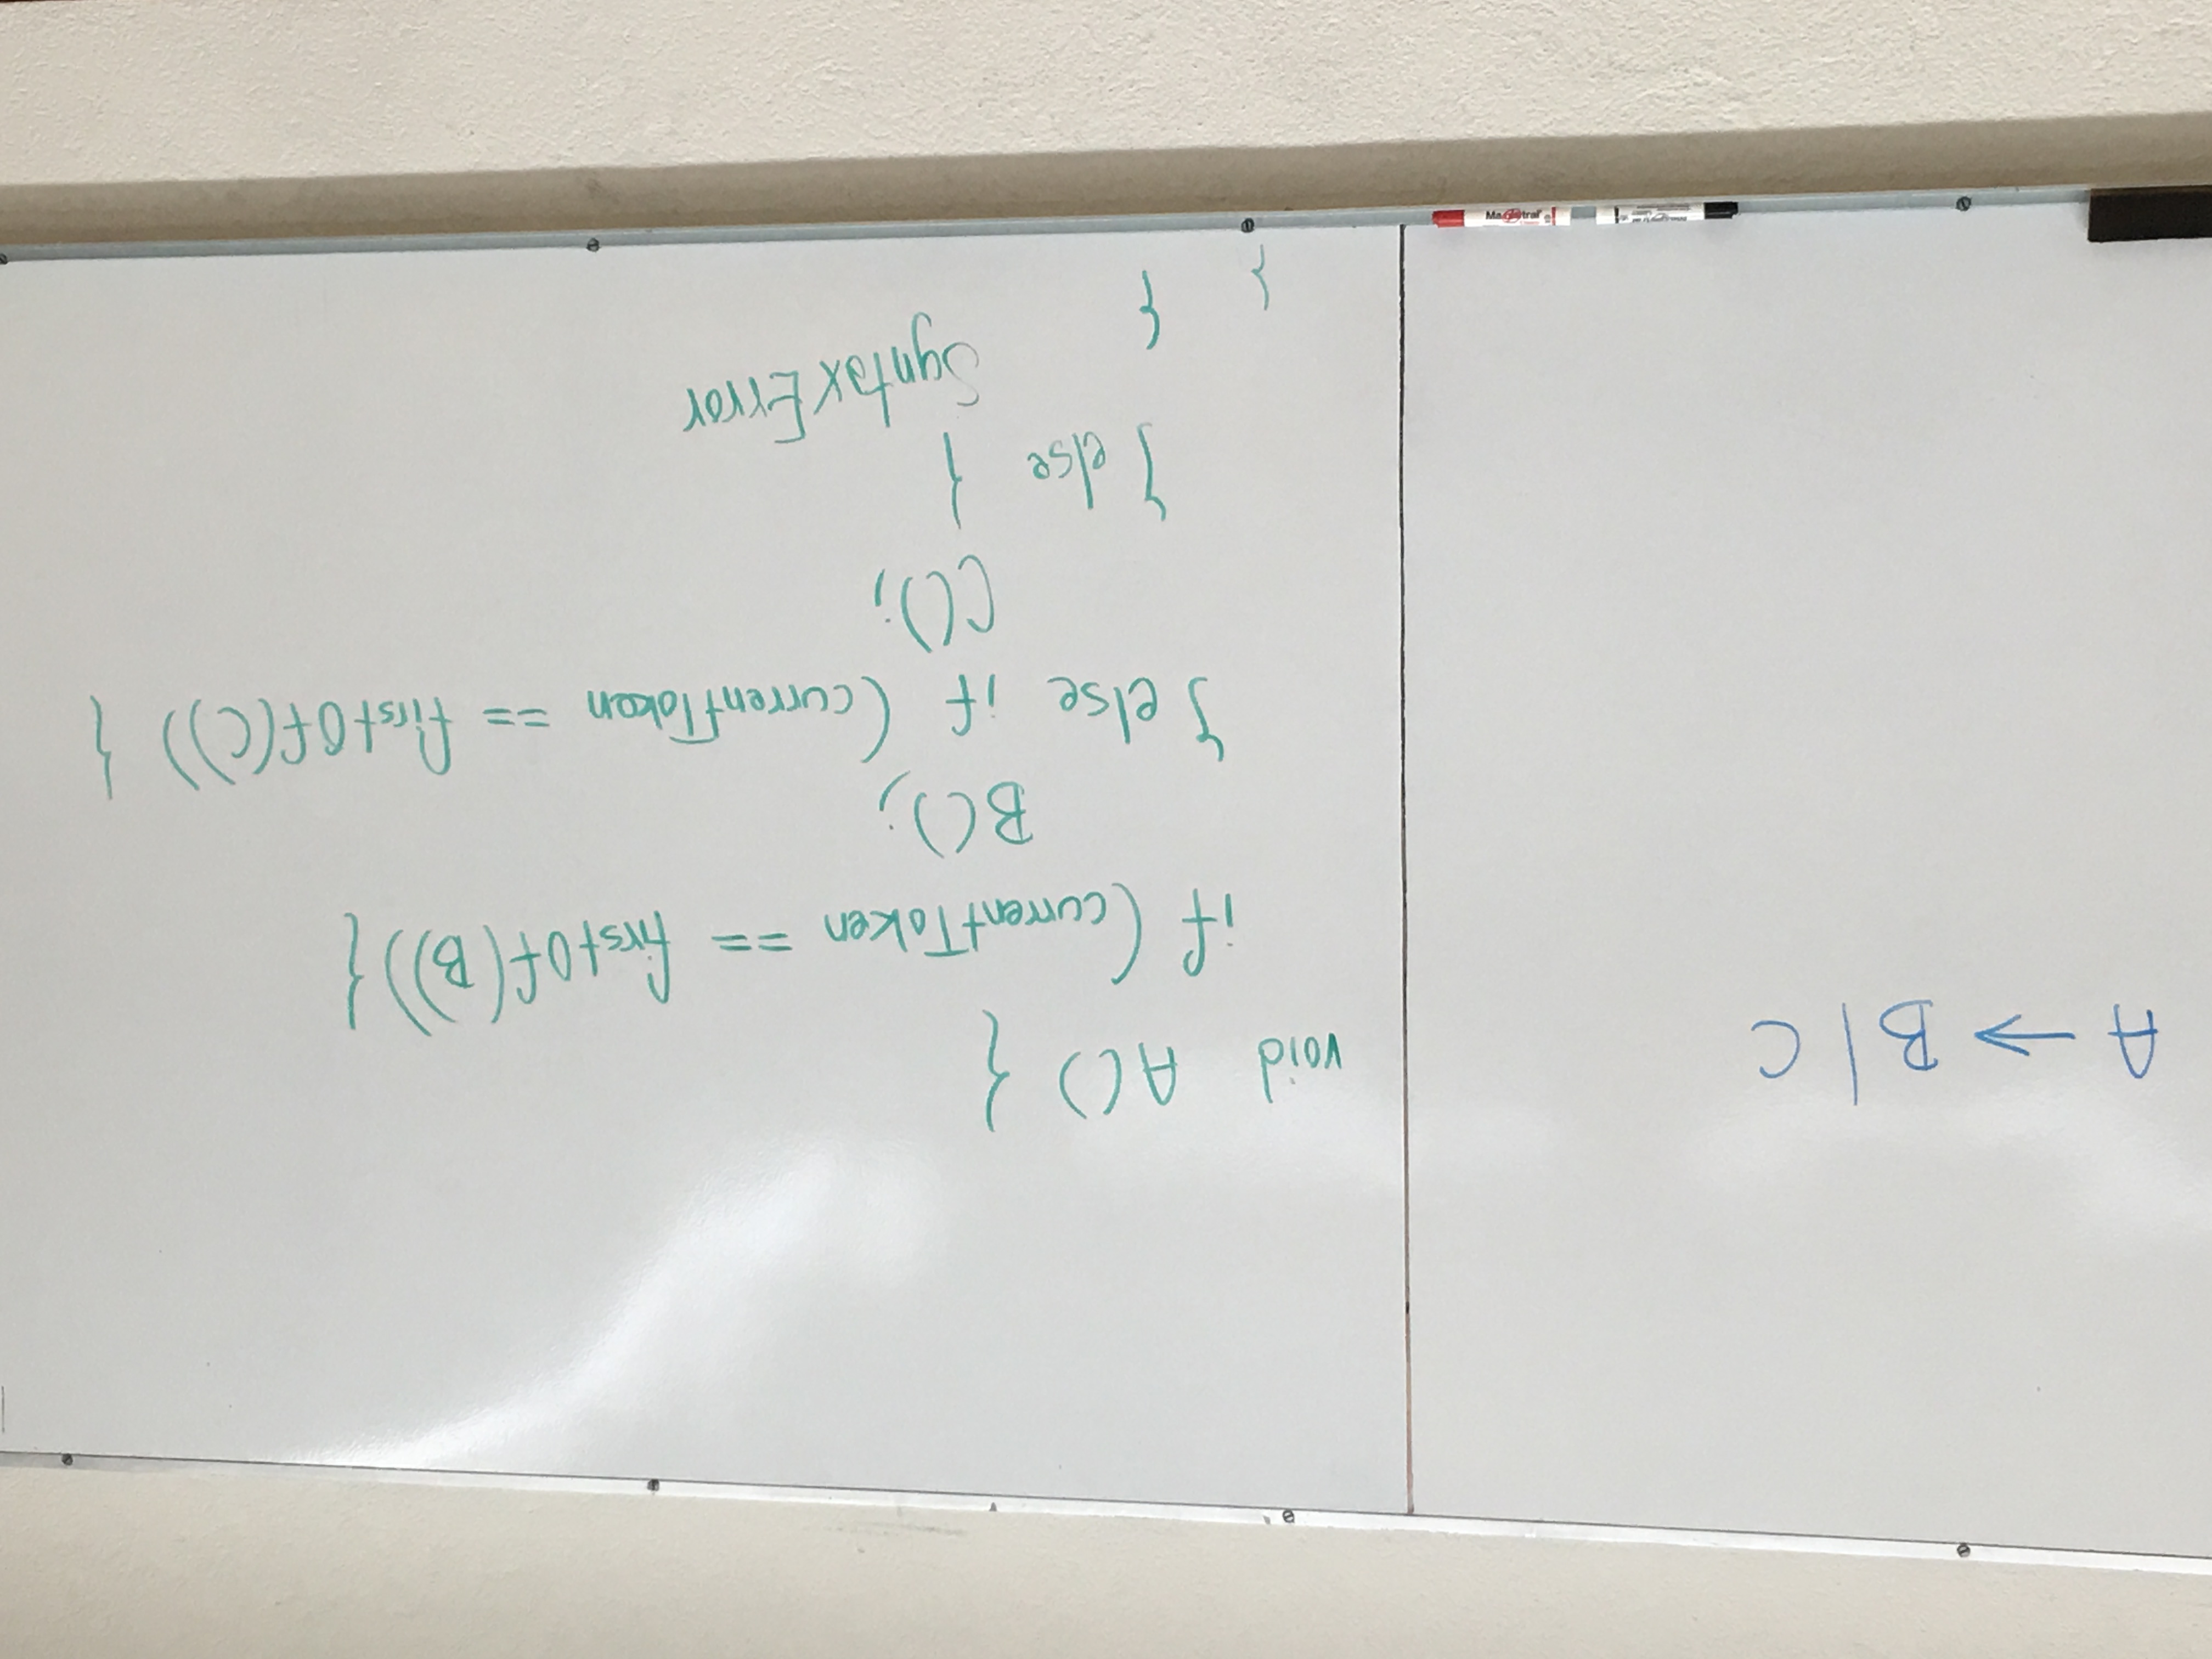 A → B | C
void A() {
if (currentToken == firstOf(B)) {
B();
} else if (currentToken == firstOf(C)) {
C();
} else {
SyntaxError
{
}
Magistral